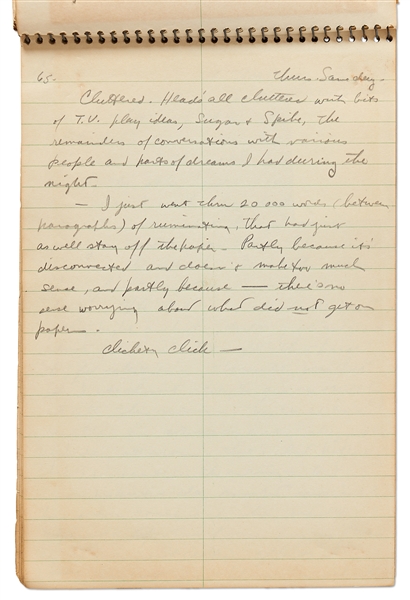 65.
Thurs. Same day -
Cluttered. Head's all cluttered with bits
of T.V. play ideas, Sugar & Spike, the
remainders of conversations with various
people and parts of dreams I had during the
night.
— I just went thru 20 000 words (between
paragraphs) of ruminating, that had just
as well stay off the paper. Partly because it's
disconnected and doesn't make too much
sense, and partly because — there's no
use worrying about what did not get on
paper —.
clickety click —